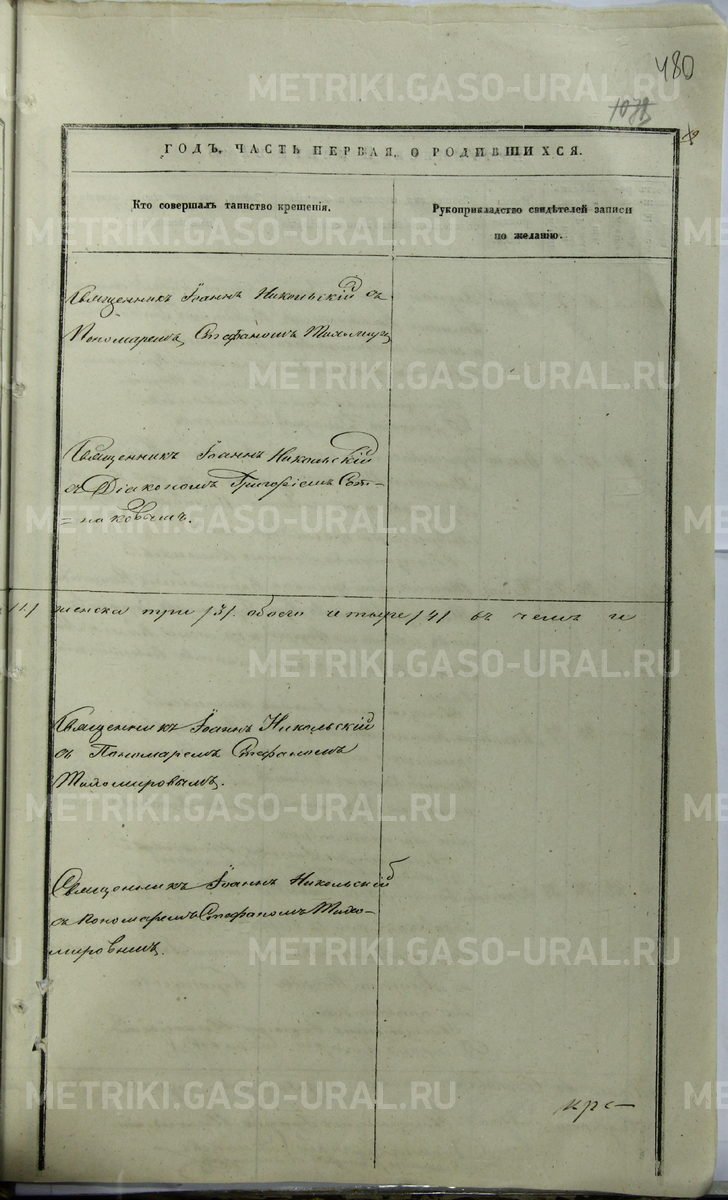 480
ГОДЪ, ЧАСТЬ ПЕРВАЯ, О РОДИВШИХСЯ.
Кто совершалъ таинство крещенія.
Рукоприкладство свидѣтелей записи
по желанію.
Священникъ Іоаннъ Никольскій съ
Пономаремъ Стефаномъ
Священникъ Іоаннъ Никольскій
съ Діакономъ Григоріемъ Сот-
=никовымъ.
/1/ женска три /3/. обоего четыре /4/ въ чемъ и
Священникъ Іоаннъ Никольскій
съ Пономаремъ Стефаномъ
Тихомировымъ.
Священникъ Іоаннъ Никольскій
съ Пономаремъ Стефаномъ Тихо-
мировымъ.
METRIKI.GASO-URAL.RU